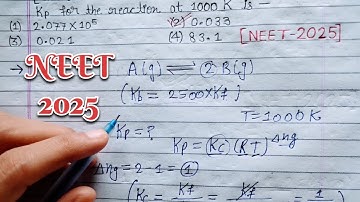 Kp for the reaction at 1000 K is -
(1) 2.077×10⁵ (2) 0.033
(3) 0.021 (4) 83.1
[NEET-2025]
→ A(g) ⇌ 2B(g)
NEET
2025
(Kb = 2500×Kf)
T=1000 K
Kp=?
Kp = (Kc)(RT)^Δng
Δng = 2-1 = 1
(Kc = Kf = Kf = 1